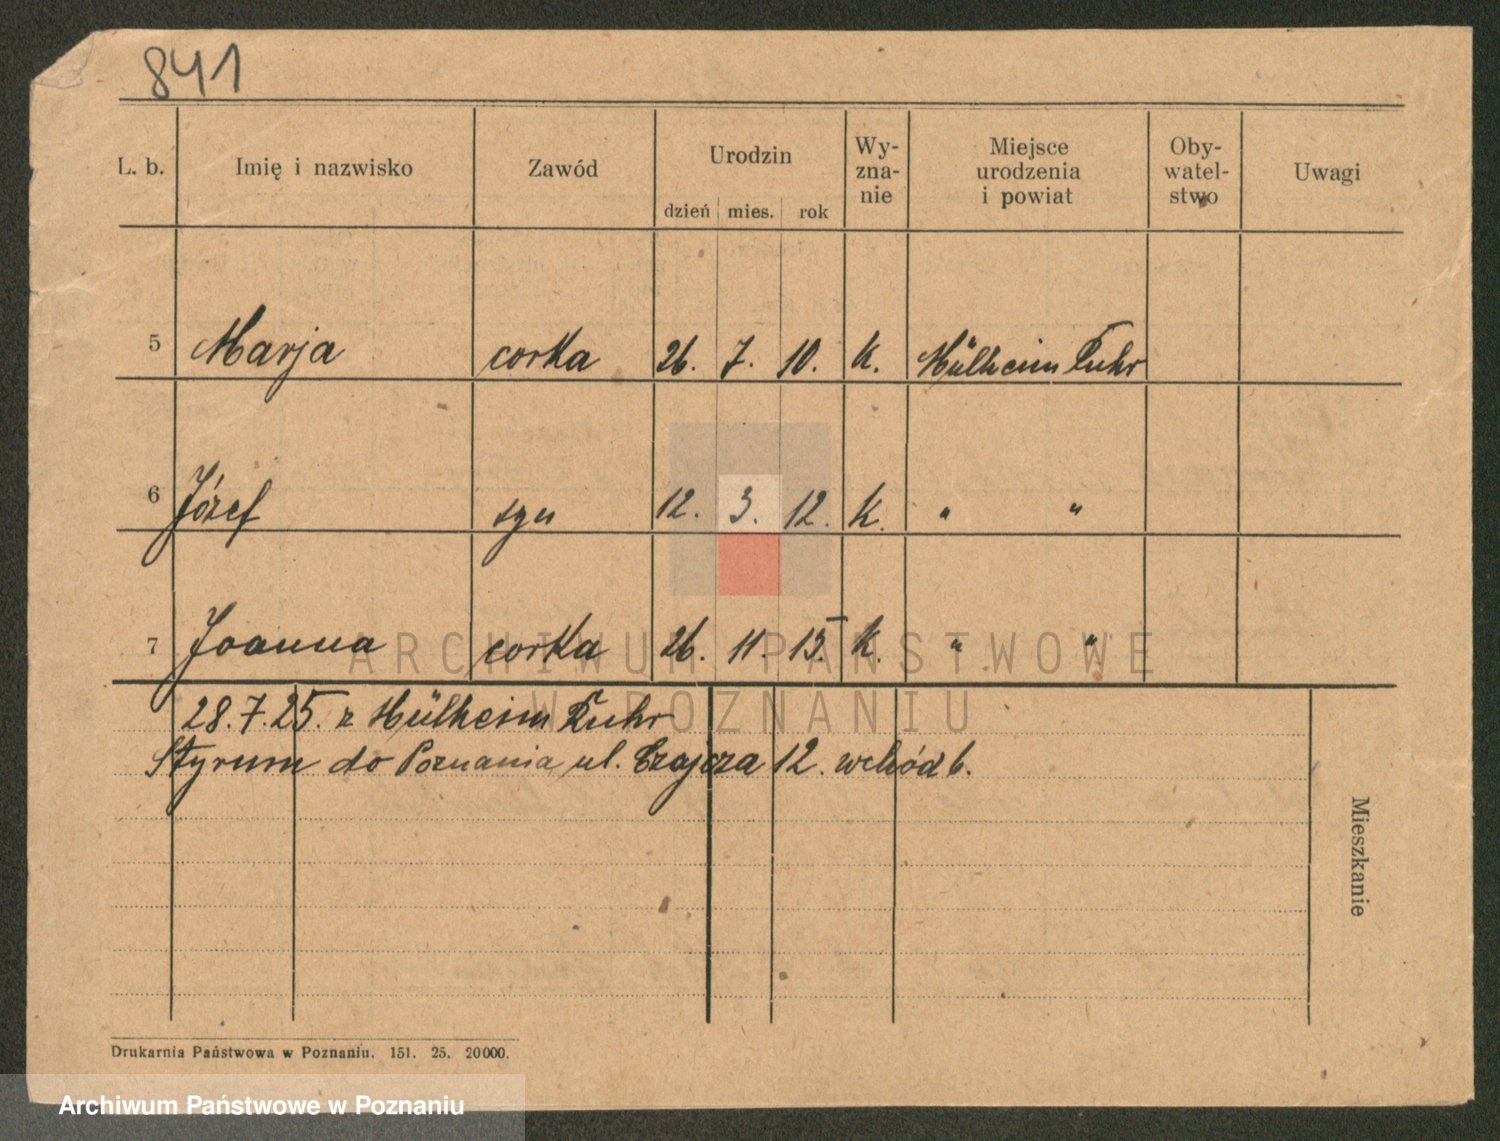 841
L. b. Imię i nazwisko Zawód Urodzin Wy-zna-nie Miejsce urodzenia i powiat Oby-watel-stwo Uwagi
dzień mies. rok
5 Marja corka 26. 7. 10. k. Mülheim Ruhr
6 Józef syn 12. 3. 12. k. " "
7 Joanna corka 26. 11. 15. k. " "
ARCHIWUM PAŃSTWOWE
W POZNANIU
28.7.25. z Mülheim Ruhr
Styrum do Poznania ul. Czajcza 12. wchód 6.
Mieszkanie
Drukarnia Państwowa w Poznaniu. 151. 25. 20000.
Archiwum Państwowe w Poznaniu